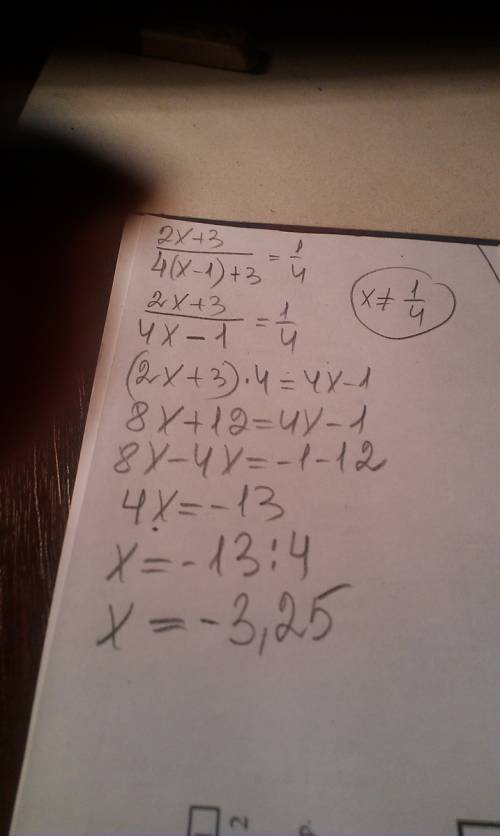 (2x+3)/(4(x-1)+3) = 1/4
x ≠ 1/4
(2x+3)/(4x-1) = 1/4
(2x+3)·4=4x-1
8x+12=4x-1
8x-4x=-1-12
4x=-13
x=-13:4
x=-3,25
2